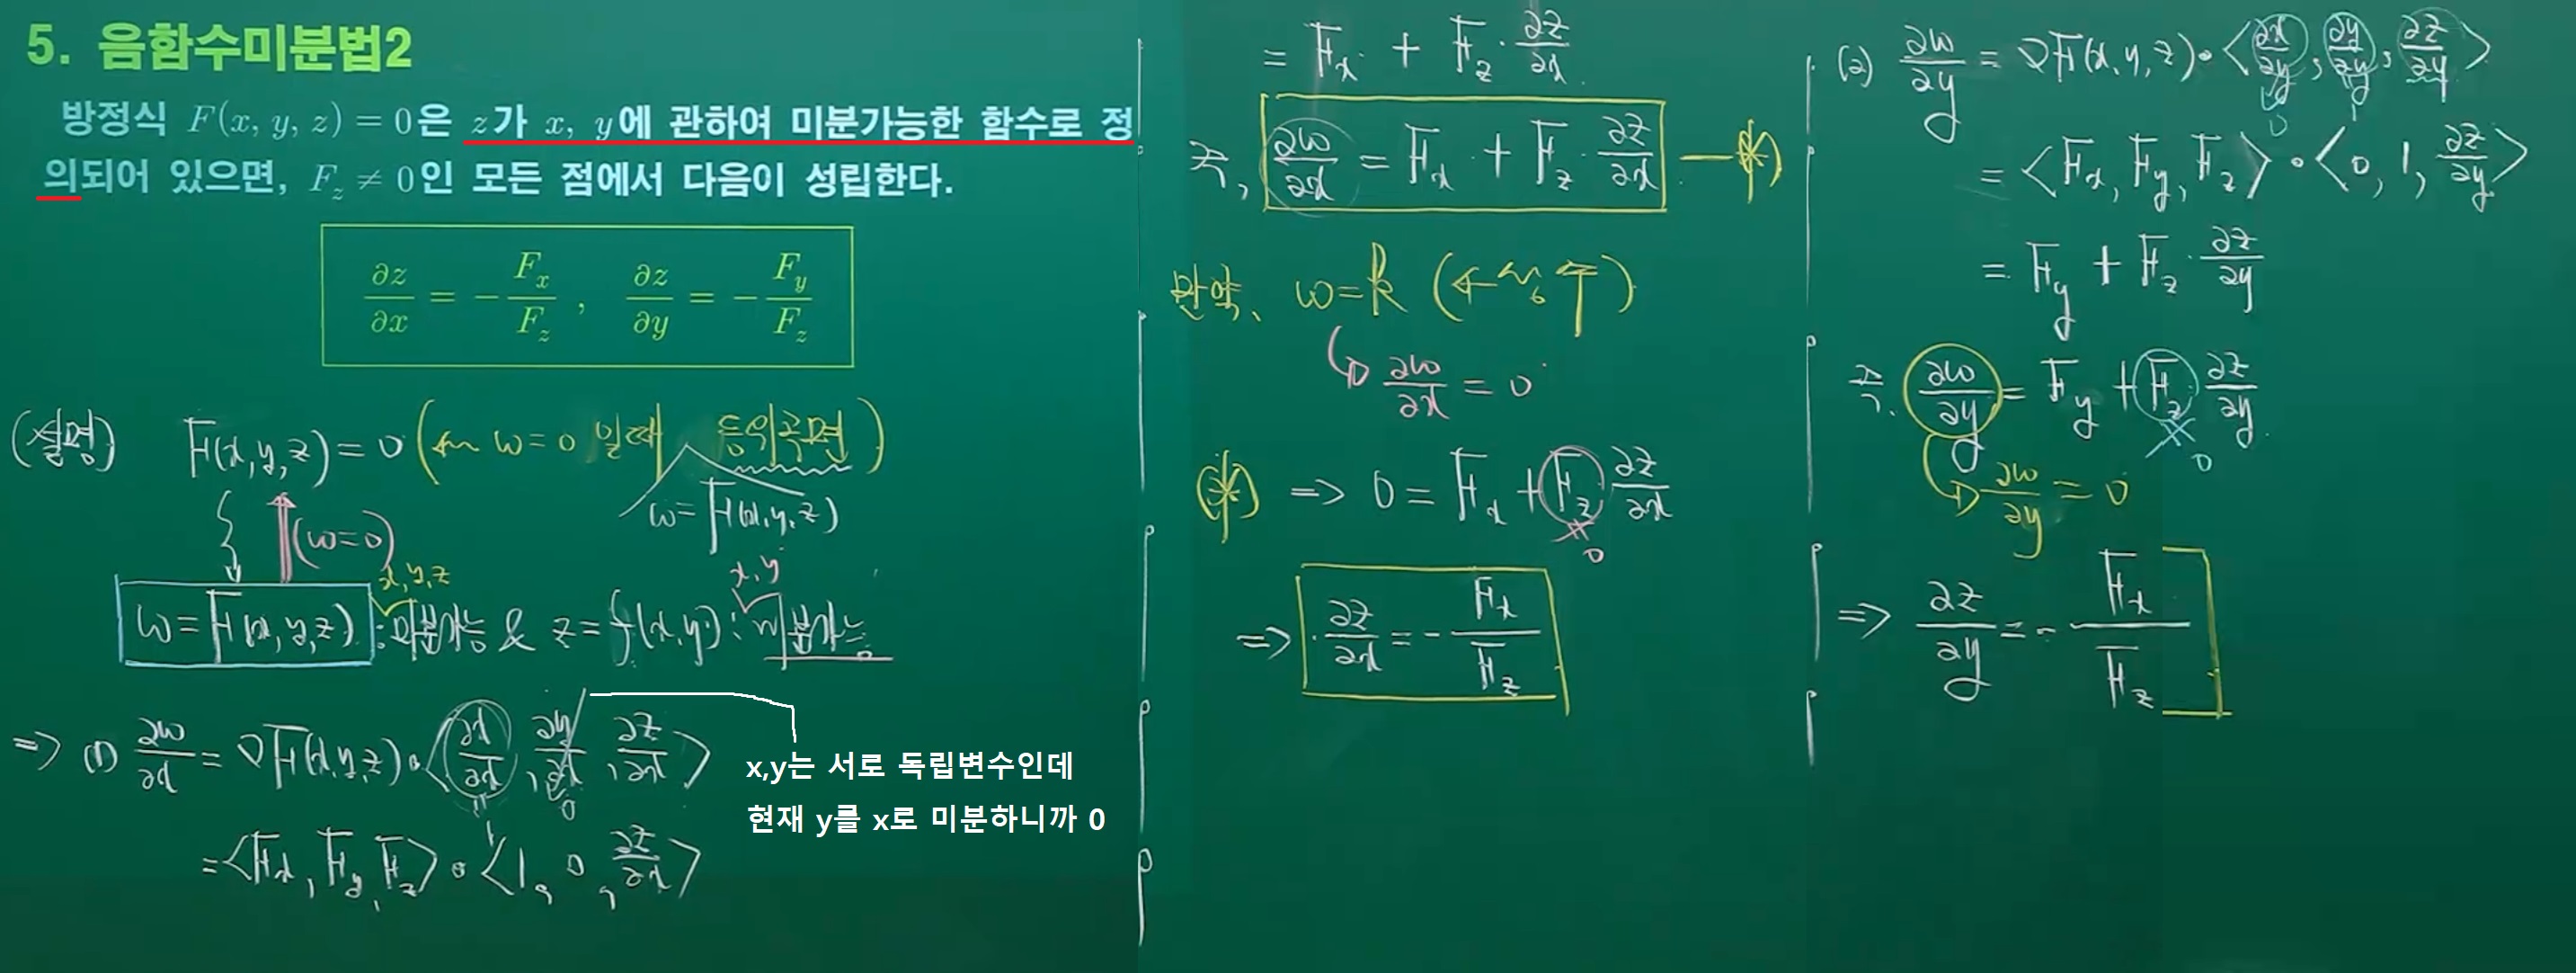 5. 음함수미분법2
방정식 F(x, y, z) = 0은 z가 x, y에 관하여 미분가능한 함수로 정
의되어 있으면, F_z ≠ 0인 모든 점에서 다음이 성립한다.
∂z/∂x = - F_x/F_z , ∂z/∂y = - F_y/F_z
(설명) F(x,y,z) = 0 (← w=0 일때 등위곡면)
w = F(x,y,z)
(w=0)
x,y,z
x,y
w = F(x,y,z) : 미분가능 & z = f(x,y) : 미분가능
⇒ (1) ∂w/∂x = ∇F(x,y,z) • <∂x/∂x, ∂y/∂x, ∂z/∂x>
0
x,y는 서로 독립변수인데
현재 y를 x로 미분하니까 0
1
= <F_x, F_y, F_z> • <1, 0, ∂z/∂x>
= F_x + F_z · ∂z/∂x
즉, ∂w/∂x = F_x + F_z · ∂z/∂x — (*)
만약, w = k
∂w/∂x = 0
(*) ⇒ 0 = F_x + F_z ∂z/∂x
≠ 0
⇒ ∂z/∂x = - F_x/F_z
(2) ∂w/∂y = ∇F(x,y,z) • <∂x/∂y, ∂y/∂y, ∂z/∂y>
0 1
= <F_x, F_y, F_z> • <0, 1, ∂z/∂y>
= F_y + F_z · ∂z/∂y
즉, ∂w/∂y = F_y + F_z ∂z/∂y
≠ 0
∂w/∂y = 0
⇒ ∂z/∂y = - F_x/F_z